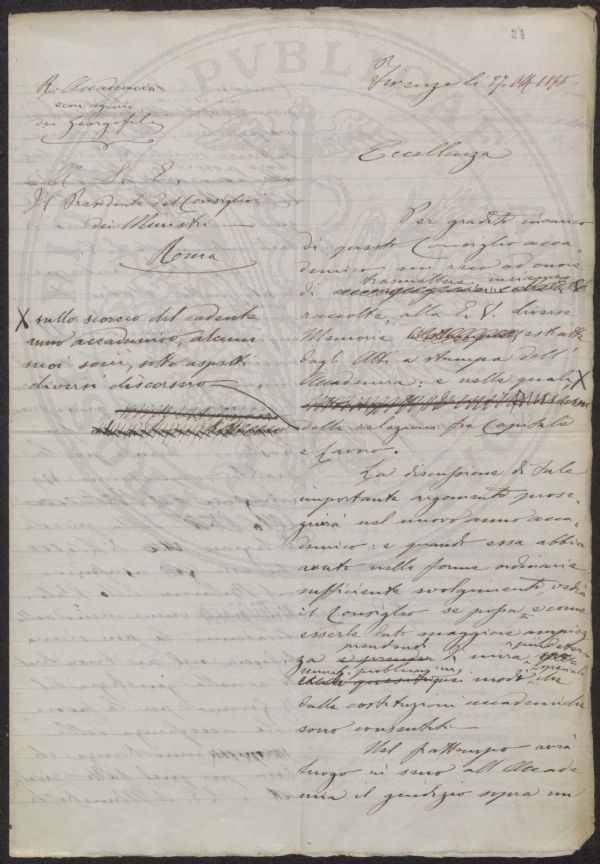 24
Firenze li 27. 1895
R. Accademia
econ. agrar.
dei Georgofili
A S. E.
Il Presidente del Consiglio
dei Ministri
Roma
Eccellenza
Per gradito incarico
di questo Consiglio acca-
demico, mi reco ad onore
di trasmettere insieme
raccolte, alla E. V. diverse
Memorie estratte
dagli Atti a stampa dell'
Accademia: e nelle quali X
X sullo scorcio del cadente
anno accademico, alcuni
suoi socii, sotto aspetti
diversi discorsero
delle relazioni fra Capitale
e Lavoro.
La discussione di tale
importante argomento prose-
guirà nel nuovo anno acca-
demico: e quando essa abbia
avuto nelle forme ordinarie
sufficiente svolgimento, vedrà
il Consiglio se possa, e come
esserle dato maggiore ampiez-
za prendendo di mira
quei modi che
dalle costituzioni accademiche
sono consentiti.
Nel frattempo avrà
luogo in seno all'Accade-
mia il giudizio sopra un